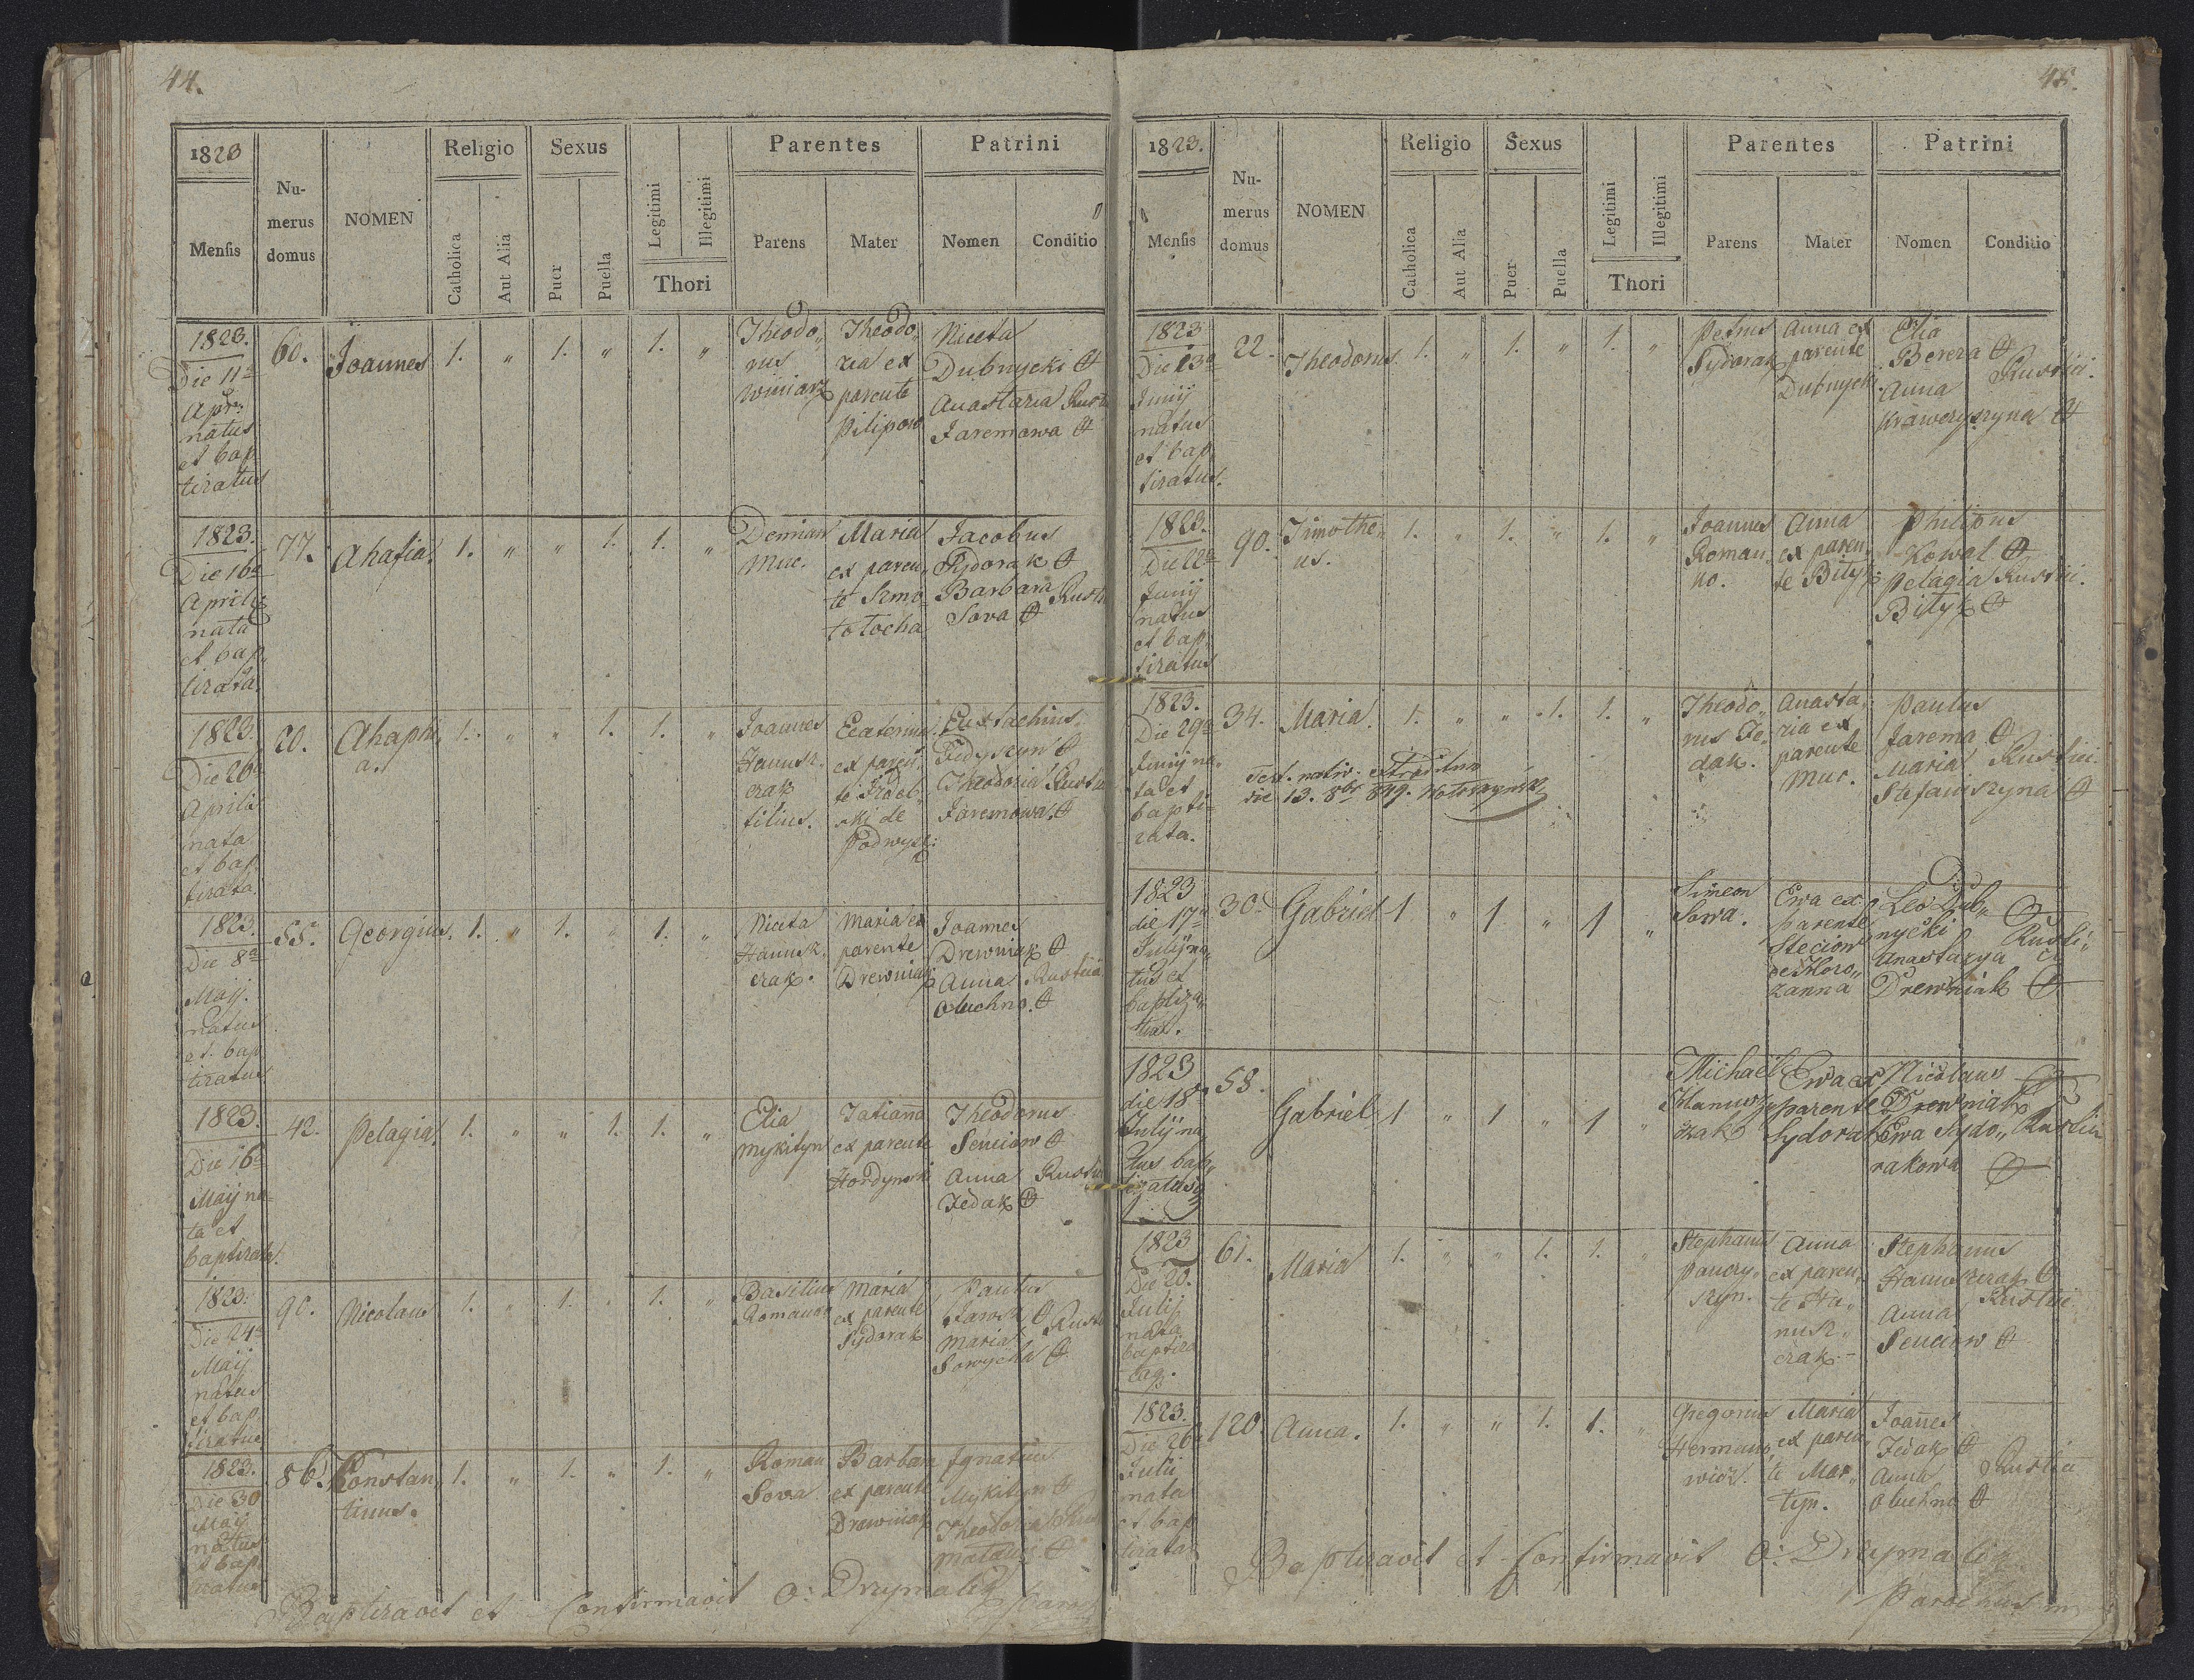 44.
1823
Mensis
Nu-
merus
domus
NOMEN
Religio
Catholica
Aut Alia
Sexus
Puer
Puella
Legitimi
Illegitimi
Thori
Parentes
Parens
Mater
Patrini
Nomen
Conditio
1823.
Die 11a
Apr:
natus
et bap
tizatus
60.
Joannes
1. " 1. " 1. "
Theodo„
rus
Winiarz
Theodo„
zia ex
parente
Pilipow
Niceta
Dubnycki
Anastazia
Jaremowa
1823.
Die 16a
Aprilis
nata
et bap„
tizata.
77.
Ahafia.
1. " " 1. 1. "
Demian
Muc.
Maria
ex paren„
te
Jacobus
Sydorak
Barbara
Sowa
1823.
Die 20
Aprili
nata
et bap
tizata.
20.
Ahaphi„
a.
1. " " 1. 1. "
Joannes
Hanusz„
czak
filius.
Ecaterina
ex paren„
te
ski de
Podwysz:
Eustachius
Fedyszyn
Theodozia
Jaremowa.
1823.
Die 8a
Maij.
natus
et bap
tizatus
55.
Georgius.
1. " 1. " 1. "
Niceta
Hanusz„
czak.
Maria ex
parente
Drewniak
Joannes
Drewniak
Anna Rustici
Oluchno.
1823.
Die 16
Maij na„
ta et
baptizata.
42.
Pelagia.
1. " " 1. 1. "
Elia
Mykityn
Tatianna
ex parente
Hordynski
Theodorus
Senciow
Anna
Fedak
1823.
Die 24a
Maij
natus
et bap„
tizatus
90.
Nicolaus
1. " 1. " 1. "
Basilius
Romano
Maria
ex parente
Sydorak
Paulus
Jarosz
Maria
Sowycha
1823.
Die 30
Maij
natus
et bap
tizatus
86.
Konstan„
tinus.
1. " 1. " 1. "
Roman
Sowa
Barbara
ex parente
Drewniak
Ignatius
Mykityn
Theodozia
Baptizavit et Confirmavit O: Drzymalik
1823.
Mensis
Nu-
merus
domus
NOMEN
Religio
Catholica
Aut Alia
Sexus
Puer
Puella
Legitimi
Illegitimi
Thori
Parentes
Parens
Mater
Patrini
Nomen
Conditio
1823
Die 13a
Junij
natus
et bap
tizatus.
22.
Theodorus.
1. " 1. " 1. "
Petrus
Sydorak
Anna ex
parente
Dubnycki.
Elia
Bereza
Anna
Rustici.
Kraweczyszyna
1823.
Die 22a
Junij
natus
et bap„
tizatus
90.
Timothe„
us.
1. " 1. " 1. "
Joannes
Roman„
no.
Anna
ex paren„
te Bityk
Philipus
Kowal
Pelagia Rustici.
Bityk
1823.
Die 29a
Junij na„
ta et
bapti„
zata.
34.
Maria.
1. " " 1. 1. "
Test. nativ. extradita
die 13. 8br 849.
Theodo„
rus Fe„
dak.
Anasta„
zia ex
parente
Muc.
Paulus
Jarema
Maria Rustici
Stefaniszyna
1823
die 17a
Julij na„
tus et
baptiza„
tus.
30.
Gabriel
1 " 1 " 1 "
Simeon
Sowa.
Ewa ex
parente
Steciow
de Horo„
zanna
Leo Dub„
nycki
Rusti„
Anastazya ci
Drewniak
1823
die 18
Julij na
tus bap„
tizatus
58.
Gabriel
1 " 1 " 1 "
Michael
Hanusz
czak
Ewa ex
parente
Sydorak
Nicolaus
Drewniak
Ewa Sydo„ Rustici
rakowa
1823
Die 20.
Julij
nata
61.
Maria
1. " " 1. 1. "
Stephanus
Panczy„
szyn.
Anna
ex paren„
te Ha„
nusz„
czak.
Stephanus
Hanuszczak
Anna Rustici
Senciow
1823.
Die 26
Julii
nata
et bap
tizata
120.
Anna.
1. " " 1. 1. "
Gregorius
Hermano„
wicz.
Maria
ex paren„
te Mar„
tyn.
Joannes
Fedak
Anna Rustici
Oluchno
Baptizavit et Confirmavit O: Drzymalik
Parochus